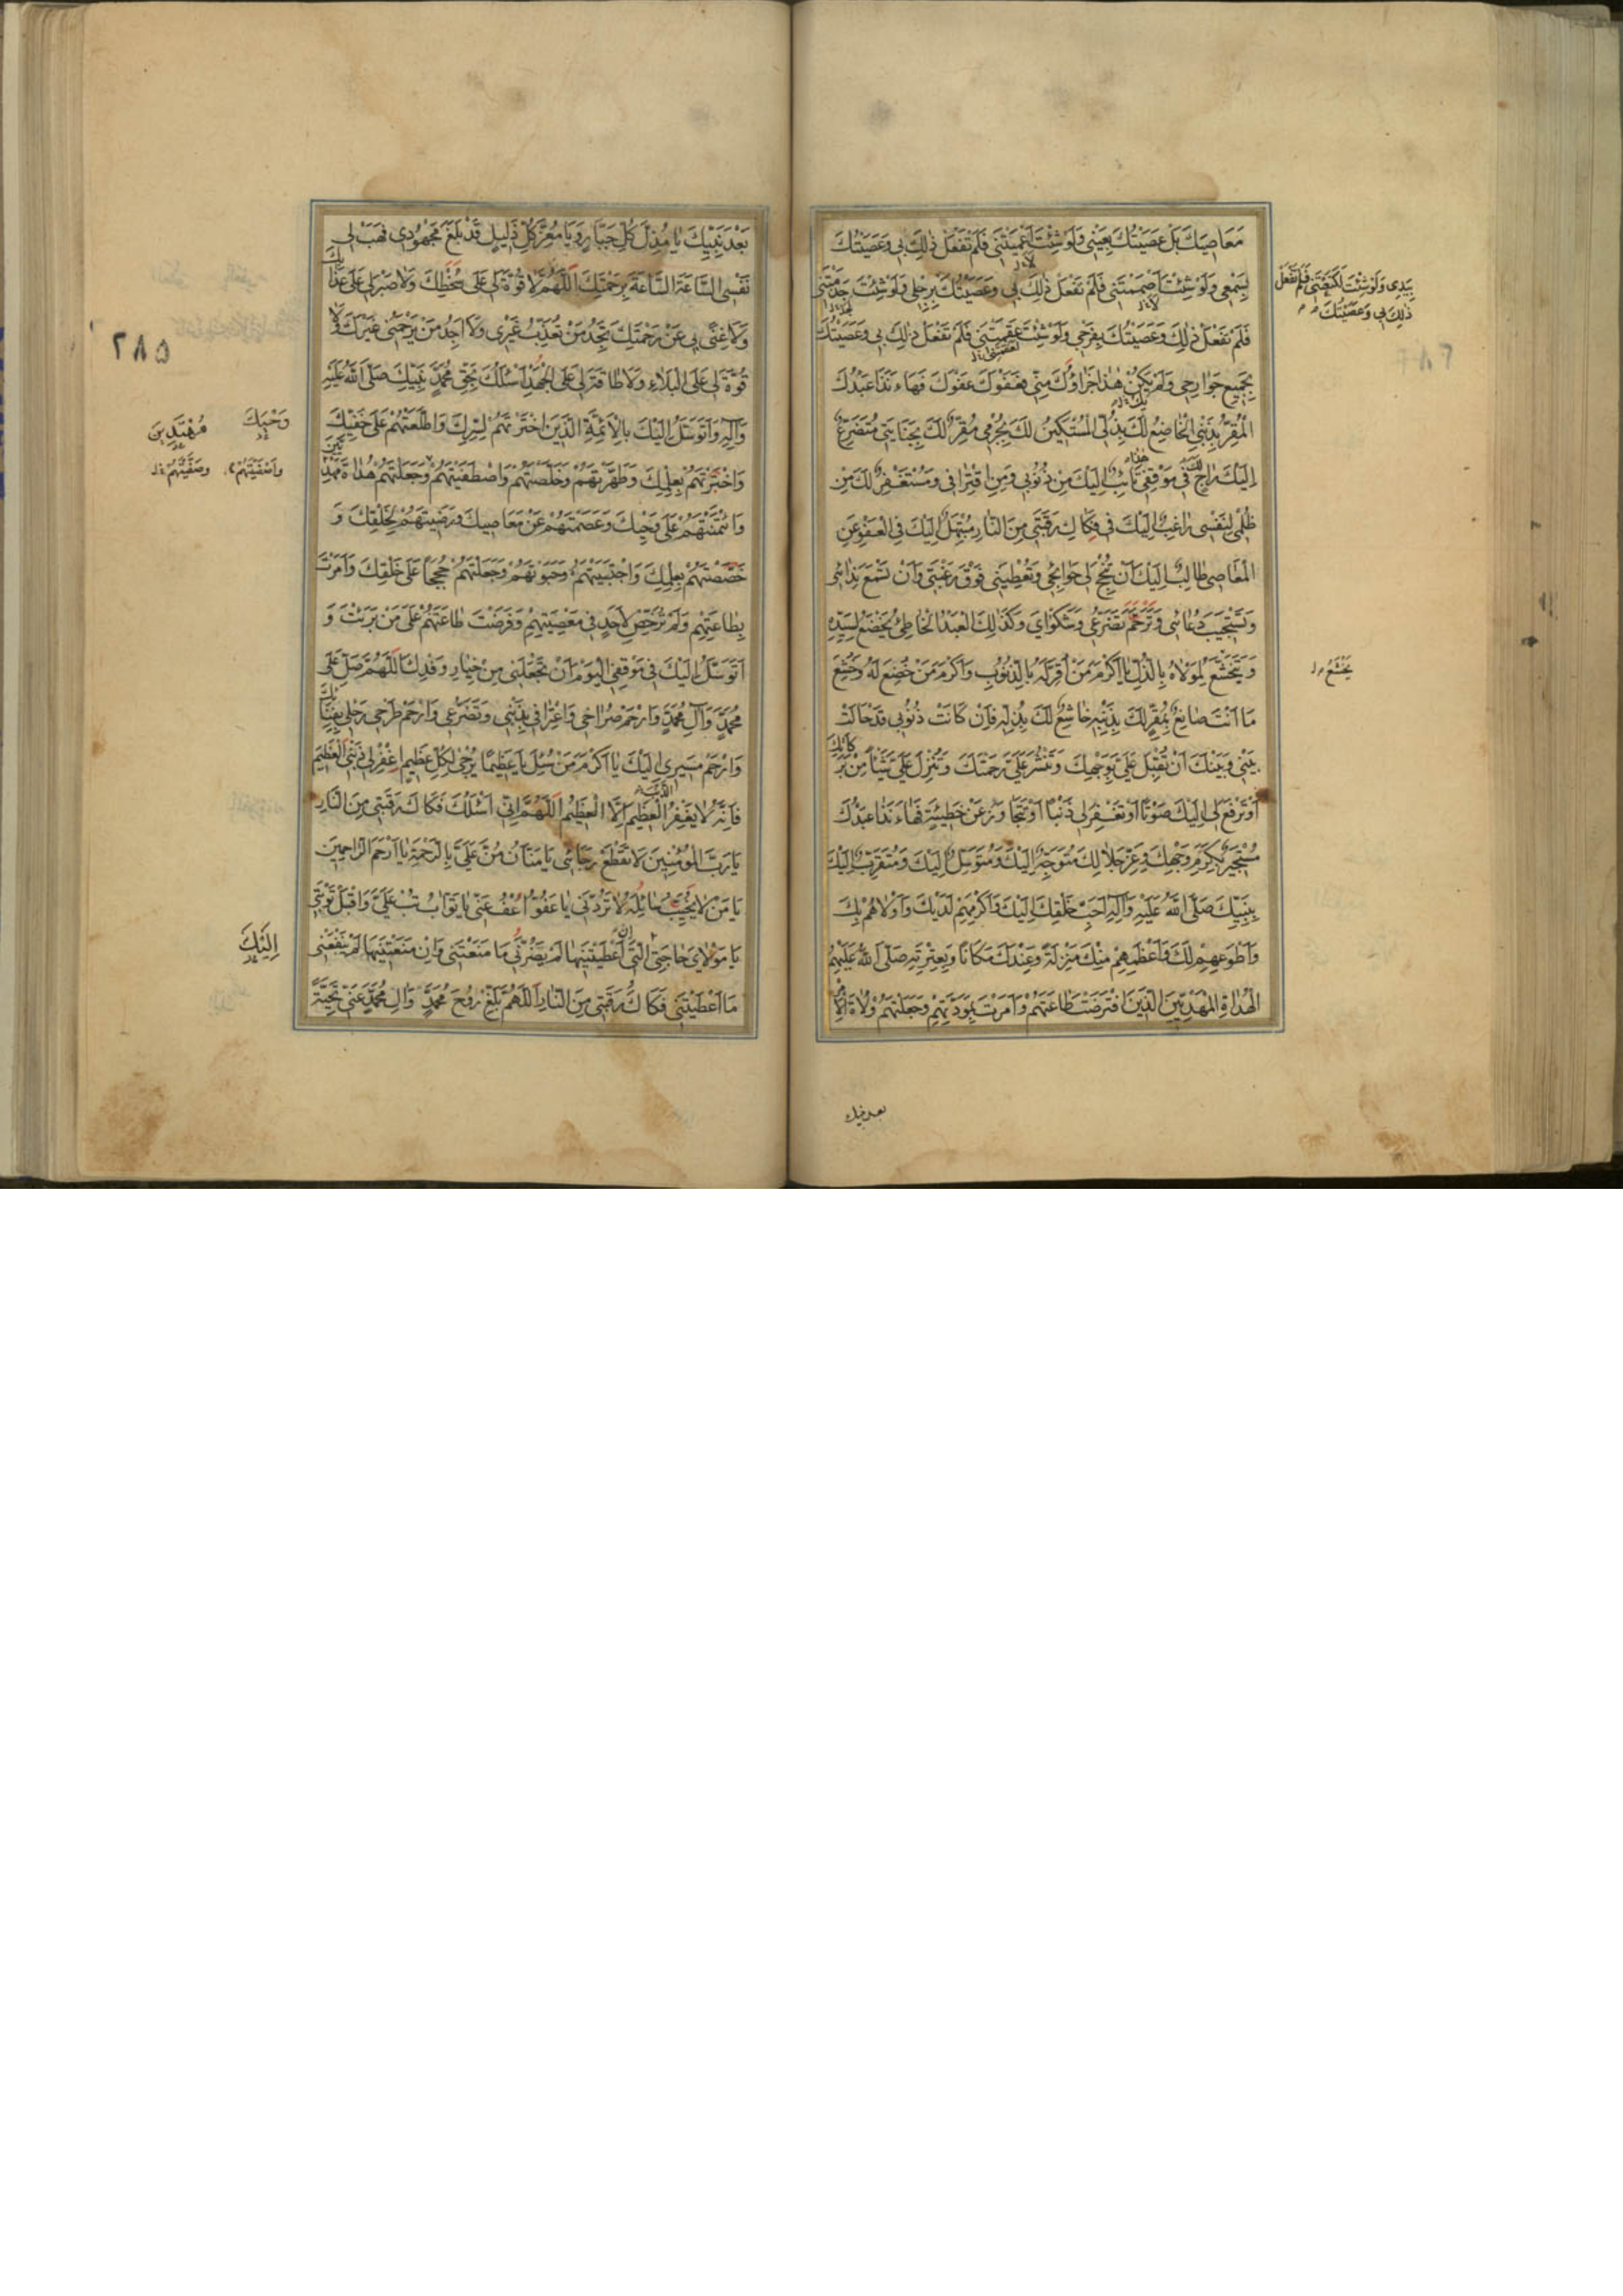 مَعَاصِيكَ بَلْ عَصَيْتُكَ بِعَيْنِي وَلَوْ شِئْتَ أَعْمَيْتَنِي فَلَمْ تَفْعَلْ ذٰلِكَ بِي وَعَصَيْتُكَ
بِسَمْعِي وَلَوْ شِئْتَ أَصْمَمْتَنِي فَلَمْ تَفْعَلْ ذٰلِكَ بِي وَعَصَيْتُكَ بِرِجْلِي وَلَوْ شِئْتَ جَذَمْتَنِي
بِيَدِي وَلَوْ شِئْتَ لَكَنَّعْتَنِي فَلَمْ تَفْعَلْ
ذٰلِكَ بِي وَعَصَيْتُكَ
فَلَمْ تَفْعَلْ ذٰلِكَ وَعَصَيْتُكَ بِفَرْجِي وَلَوْ شِئْتَ عَقَمْتَنِي فَلَمْ تَفْعَلْ ذٰلِكَ بِي وَعَصَيْتُكَ
بِجَمِيعِ جَوَارِحِي وَلَمْ يَكُنْ هٰذَا جَزَاؤُكَ مِنِّي فَعَفْوَكَ عَفْوَكَ فَهَاءَ نَذَا عَبْدُكَ
الْمُقِرُّ بِذَنْبِي الْخَاضِعُ لَكَ بِذُلِّي الْمُسْتَكِينُ لَكَ بِجُرْمِي مُقِرٌّ لَكَ بِجِنَايَتِي مُتَضَرِّعٌ
إِلَيْكَ رَاجٍ لَكَ فِي مَوْقِفِي تَائِبٌ إِلَيْكَ مِنْ ذُنُوبِي وَمِنِ اقْتِرَافِي وَمُسْتَغْفِرٌ لَكَ مِنْ
ظُلْمِي لِنَفْسِي رَاغِبٌ إِلَيْكَ فِي فَكَاكِ رَقَبَتِي مِنَ النَّارِ مُبْتَهِلٌ إِلَيْكَ فِي الْعَفْوِ عَنِ
الْمَعَاصِي طَالِبٌ إِلَيْكَ أَنْ تُنْجِحَ لِي حَوَائِجِي وَتُعْطِيَنِي فَوْقَ رَغْبَتِي وَأَنْ تَسْمَعَ نِدَائِي
وَتَسْتَجِيبَ دُعَائِي وَتَرْحَمَ تَضَرُّعِي وَشَكْوَايَ وَكَذٰلِكَ الْعَبْدُ الْخَاطِئُ يَخْضَعُ لِسَيِّدِهِ
وَيَتَخَشَّعُ لِمَوْلَاهُ بِالذُّلِّ يَا أَكْرَمَ مَنْ أُقِرَّ لَهُ بِالذُّنُوبِ وَأَكْرَمَ مَنْ خُضِعَ لَهُ وَخُشِعَ
يَخْشَعُ
مَا أَنْتَ صَانِعٌ بِمُقِرٍّ لَكَ بِذَنْبِهِ خَاشِعٍ لَكَ بِذُلِّهِ فَإِنْ كَانَتْ ذُنُوبِي قَدْ حَالَتْ
بَيْنِي وَبَيْنَكَ أَنْ تُقْبِلَ عَلَيَّ بِوَجْهِكَ وَتَنْشُرَ عَلَيَّ رَحْمَتَكَ وَتُنْزِلَ عَلَيَّ شَيْئًا مِنْ بَرَكَاتِكَ
أَوْ تَرْفَعَ لِي إِلَيْكَ صَوْتًا أَوْ تَغْفِرَ لِي ذَنْبًا أَوْ تَتَجَاوَزَ عَنْ خَطِيئَةٍ فَهَاءَ نَذَا عَبْدُكَ
مُسْتَجِيرٌ بِكَرَمِ وَجْهِكَ وَعِزِّ جَلَالِكَ مُتَوَجِّهٌ إِلَيْكَ وَمُتَوَسِّلٌ إِلَيْكَ وَمُتَقَرِّبٌ إِلَيْكَ
بِنَبِيِّكَ صَلَّى اللَّهُ عَلَيْهِ وَآلِهِ أَحَبِّ خَلْقِكَ إِلَيْكَ وَأَكْرَمِهِمْ لَدَيْكَ وَأَوْلَاهُمْ بِكَ
وَأَطْوَعِهِمْ لَكَ وَأَعْظَمِهِمْ مِنْكَ مَنْزِلَةً وَعِنْدَكَ مَكَانًا وَبِعِتْرَتِهِ صَلَّى اللَّهُ عَلَيْهِمُ
الْهُدَاةِ الْمَهْدِيِّينَ الَّذِينَ افْتَرَضْتَ طَاعَتَهُمْ وَأَمَرْتَ بِمَوَدَّتِهِمْ وَجَعَلْتَهُمْ وُلَاةَ الْأَمْرِ
بعد نبيك
بَعْدَ نَبِيِّكَ يَا مُذِلَّ كُلِّ جَبَّارٍ وَيَا مُعِزَّ كُلِّ ذَلِيلٍ قَدْ بَلَغَ مَجْهُودِي فَهَبْ لِي
نَفْسِي السَّاعَةَ السَّاعَةَ بِرَحْمَتِكَ اللَّهُمَّ لَا قُوَّةَ لِي عَلَى سَخَطِكَ وَلَا صَبْرَ لِي عَلَى عَذَابِكَ
وَلَا غِنَى بِي عَنْ رَحْمَتِكَ تَجِدُ مَنْ تُعَذِّبُ غَيْرِي وَلَا أَجِدُ مَنْ يَرْحَمُنِي غَيْرَكَ وَلَا
٢٨٥
قُوَّةَ لِي عَلَى الْبَلَاءِ وَلَا طَاقَةَ لِي عَلَى الْجُهْدِ أَسْئَلُكَ بِحَقِّ مُحَمَّدٍ نَبِيِّكَ صَلَّى اللَّهُ عَلَيْهِ
وَآلِهِ وَأَتَوَسَّلُ إِلَيْكَ بِالْأَئِمَّةِ الَّذِينَ اخْتَرْتَهُمْ لِسِرِّكَ وَأَطْلَعْتَهُمْ عَلَى خَفِيِّكَ
وَحْيِكَ
مُهْتَدِينَ
وَاخْتَرْتَهُمْ بِعِلْمِكَ وَطَهَّرْتَهُمْ وَخَلَّصْتَهُمْ وَاصْطَفَيْتَهُمْ وَجَعَلْتَهُمْ هُدَاةً مَهْدِيِّينَ
وَأَصْفَيْتَهُمْ
وَصَفَّيْتَهُمْ
وَائْتَمَنْتَهُمْ عَلَى وَحْيِكَ وَعَصَمْتَهُمْ عَنْ مَعَاصِيكَ وَرَضِيتَهُمْ لِخَلْقِكَ وَ
خَصَصْتَهُمْ بِعِلْمِكَ وَاجْتَبَيْتَهُمْ وَحَبَوْتَهُمْ وَجَعَلْتَهُمْ حُجَجًا عَلَى خَلْقِكَ وَأَمَرْتَ
بِطَاعَتِهِمْ وَلَمْ تُرَخِّصْ لِأَحَدٍ فِي مَعْصِيَتِهِمْ وَفَرَضْتَ طَاعَتَهُمْ عَلَى مَنْ بَرَئْتَ وَ
أَتَوَسَّلُ إِلَيْكَ فِي مَوْقِفِي الْيَوْمَ أَنْ تَجْعَلَنِي مِنْ خِيَارِ وَفْدِكَ اللَّهُمَّ صَلِّ عَلَى
مُحَمَّدٍ وَآلِ مُحَمَّدٍ وَارْحَمْ صُرَاخِي وَاعْتِرَافِي بِذَنْبِي وَتَضَرُّعِي وَارْحَمْ طَرْحِي رَحْلِي بِفِنَائِكَ
وَارْحَمْ مَسِيرِي إِلَيْكَ يَا أَكْرَمَ مَنْ سُئِلَ يَا عَظِيمًا يُرْجَى لِكُلِّ عَظِيمٍ اغْفِرْ لِي ذَنْبِيَ الْعَظِيمَ
فَإِنَّهُ لَا يَغْفِرُ الذَّنْبَ الْعَظِيمَ إِلَّا الْعَظِيمُ اللَّهُمَّ إِنِّي أَسْئَلُكَ فَكَاكَ رَقَبَتِي مِنَ النَّارِ
يَا رَبَّ الْمُؤْمِنِينَ لَا تَقْطَعْ رَجَائِي يَا مَنَّانُ مُنَّ عَلَيَّ بِالرَّحْمَةِ يَا أَرْحَمَ الرَّاحِمِينَ
يَا مَنْ لَا يُخَيِّبُ سَائِلَهُ لَا تَرُدَّنِي يَا عَفُوُّ اعْفُ عَنِّي يَا تَوَّابُ تُبْ عَلَيَّ وَاقْبَلْ تَوْبَتِي
يَا مَوْلَايَ حَاجَتِيَ الَّتِي إِنْ أَعْطَيْتَنِيهَا لَمْ يَضُرَّنِي مَا مَنَعْتَنِي وَإِنْ مَنَعْتَنِيهَا لَمْ يَنْفَعْنِي
إِلَيْكَ
مَا أَعْطَيْتَنِي فَكَاكُ رَقَبَتِي مِنَ النَّارِ اللَّهُمَّ بَلِّغْ رُوحَ مُحَمَّدٍ وَآلِ مُحَمَّدٍ عَنِّي تَحِيَّةً